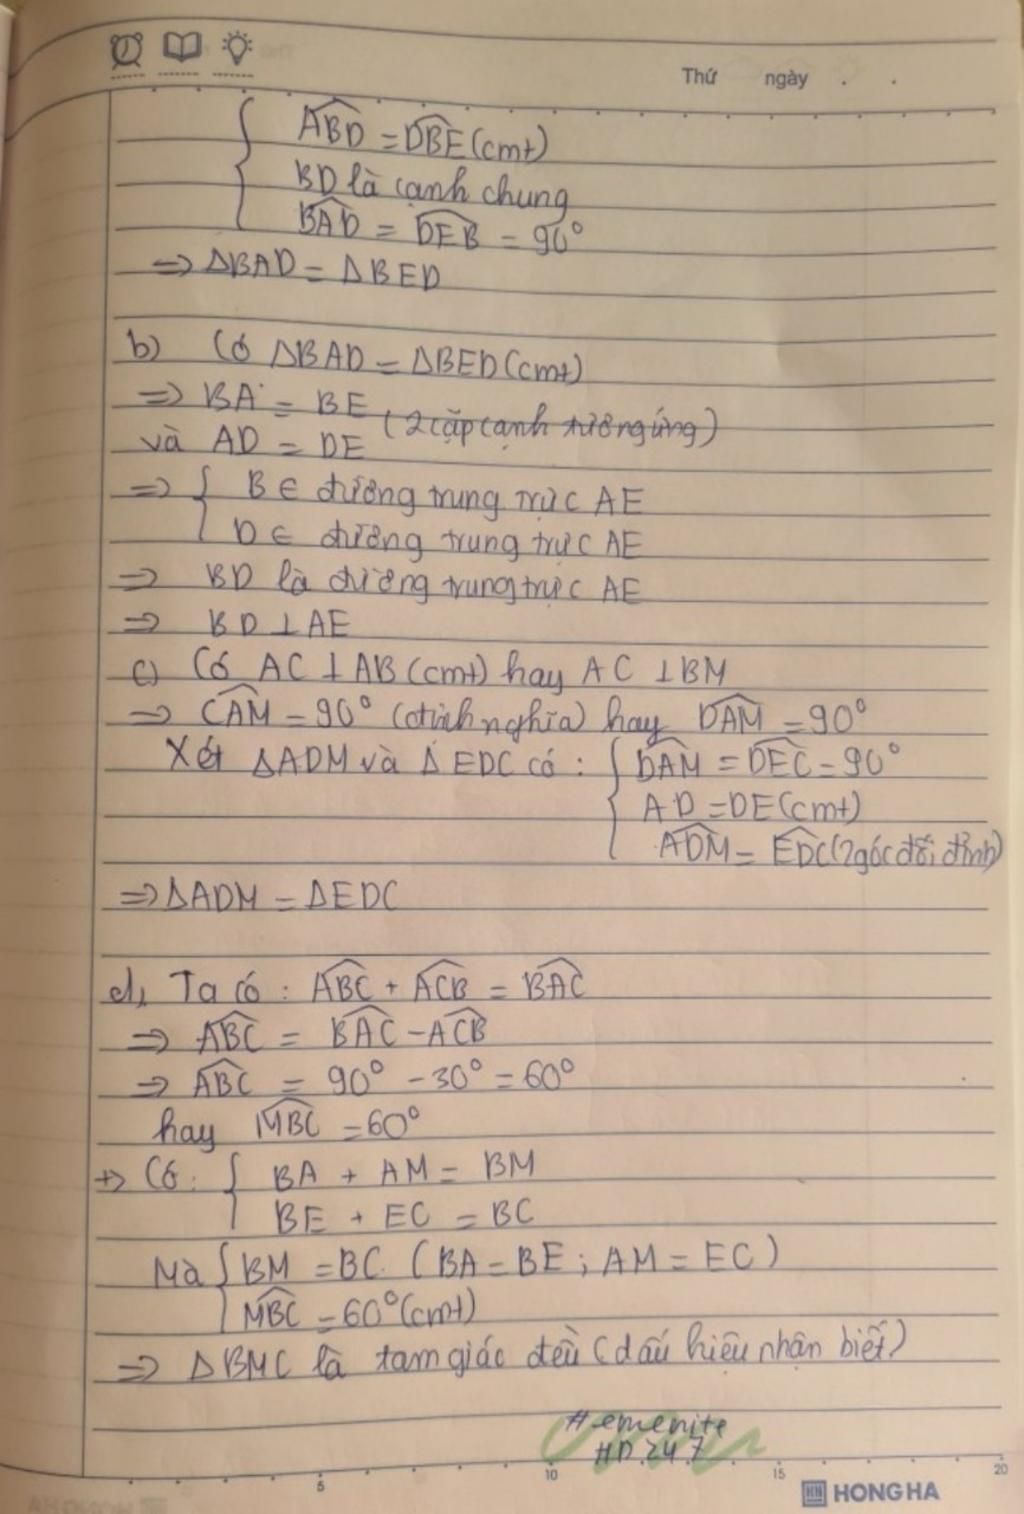 Thứ ngày . .
{ ABD̂ = DBÊ (cmt)
BD là cạnh chung
BAD̂ = DEB̂ = 90°
=> ΔBAD = ΔBED
b) Có ΔBAD = ΔBED (cmt)
=> BA = BE (2 cặp cạnh tương ứng)
và AD = DE
=> { B ∈ đường trung trực AE
D ∈ đường trung trực AE
=> BD là đường trung trực AE
=> BD ⊥ AE
c) Có AC ⊥ AB (cmt) hay AC ⊥ BM
=> CAM̂ = 90° (định nghĩa) hay DAM̂ = 90°
Xét ΔADM và ΔEDC có : { DAM̂ = DEĈ = 90°
AD = DE (cmt)
ADM̂ = EDĈ (2 góc đối đỉnh)
=> ΔADM = ΔEDC
d, Ta có : ABĈ + ACB̂ = BAĈ
=> ABĈ = BAĈ - ACB̂
=> ABĈ = 90° - 30° = 60°
hay MBĈ = 60°
+> Có : { BA + AM = BM
BE + EC = BC
Mà { BM = BC (BA = BE ; AM = EC)
MBĈ = 60° (cmt)
=> ΔBMC là tam giác đều (dấu hiệu nhận biết)
#emenite
HD.247
5 10 15 20
HONG HA